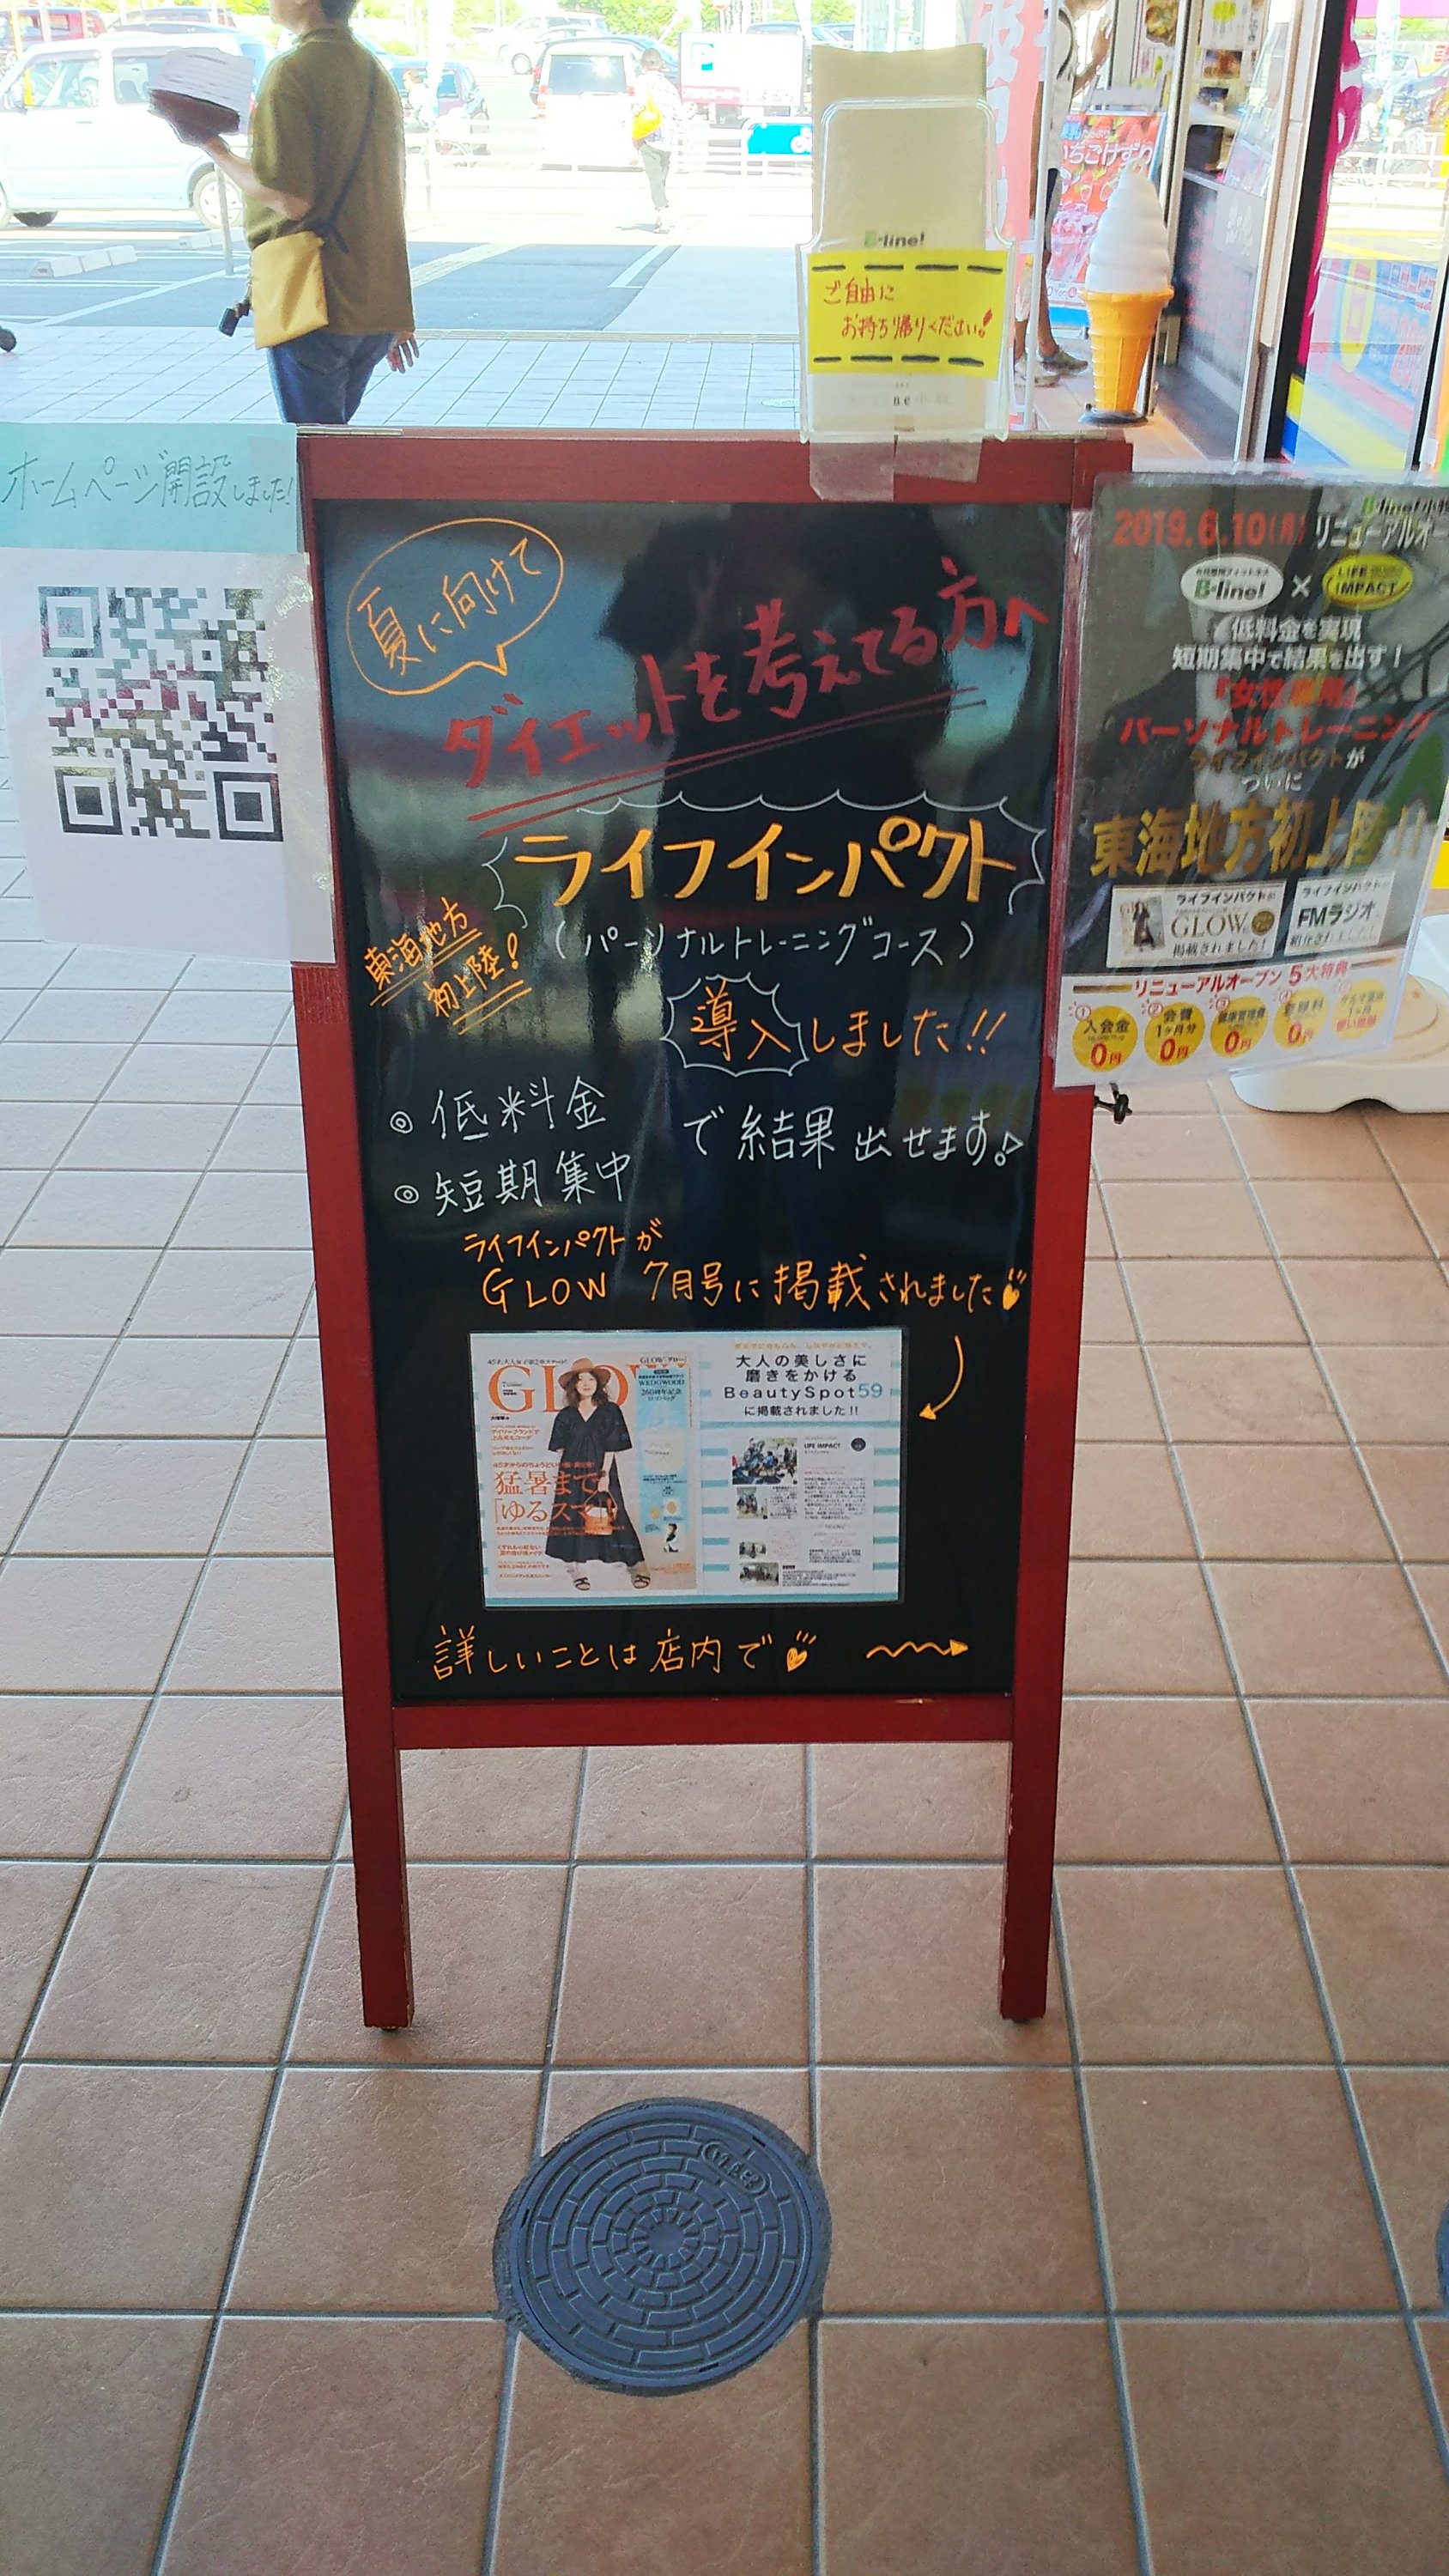 B-line!
ご自由に
お持ち帰りください!
いちごけずり
ホームページ開設しました!
夏に向けて
ダイエットを考えてる方へ
ライフインパクト
(パーソナルトレーニングコース)
東海地方
初上陸!
導入しました!!
◎低料金
◎短期集中
で結果出せます!
ライフインパクトが
GLOW 7月号に掲載されました
GLOW
猛暑まで
「ゆるスマ」!
WEDGWOOD
大人の美しさに
磨きをかける
BeautySpot59
に掲載されました!!
LIFE IMPACT
詳しいことは店内で
2019.6.10(月)リニューアルオー
B-line! × LIFE IMPACT
低料金を実現
短期集中で結果を出す!
『女性専用』
パーソナルトレーニング
ライフインパクトが
ついに
東海地方初上陸!!
ライフインパクトが
GLOW
掲載されました!
ライフインパクトが
FMラジオ
紹介されました!
リニューアルオープン 5大特典
① 入会金 0円
② 会費 1ヶ月分 0円
③ 0円
④ 登録料 0円